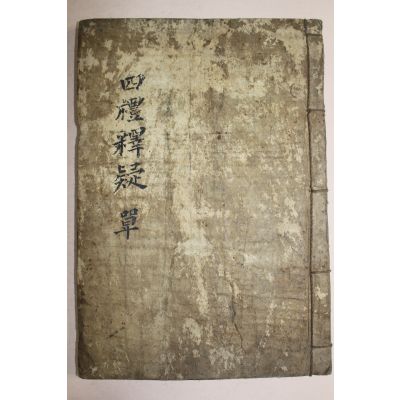 四禮釋疑 單